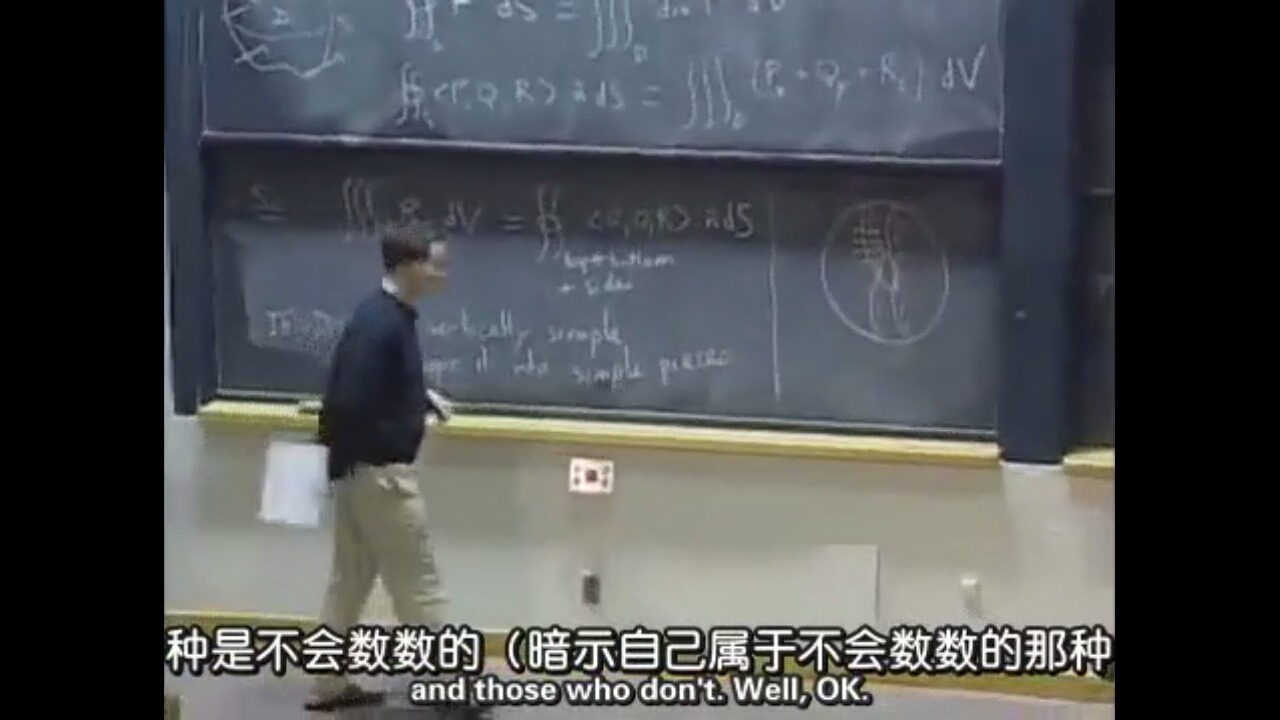 dS = ∭ dV
∯ <P, Q, R> n dS = ∭_D (P_x + Q_y + R_z) dV
∭ dV = ∯ <P, Q, R> n dS
top + bottom
+ sides
vertically simple
it into simple pieces
种是不会数数的（暗示自己属于不会数数的那种
and those who don't. Well, OK.